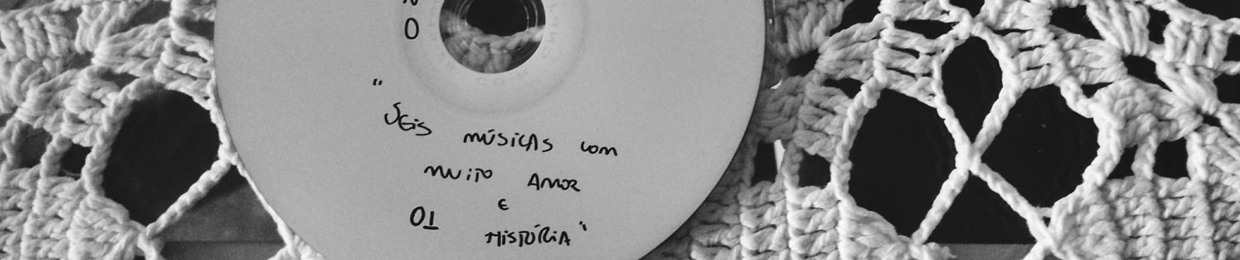 O
"Seis músicas com
muito amor
e
história"
01